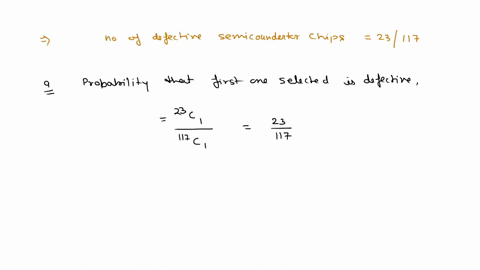 ⇒ no of defective semicounderter chips = 23/117
a Probability that first one selected is defective,
= ²³C₁ / ¹¹⁷C₁ = 23/117